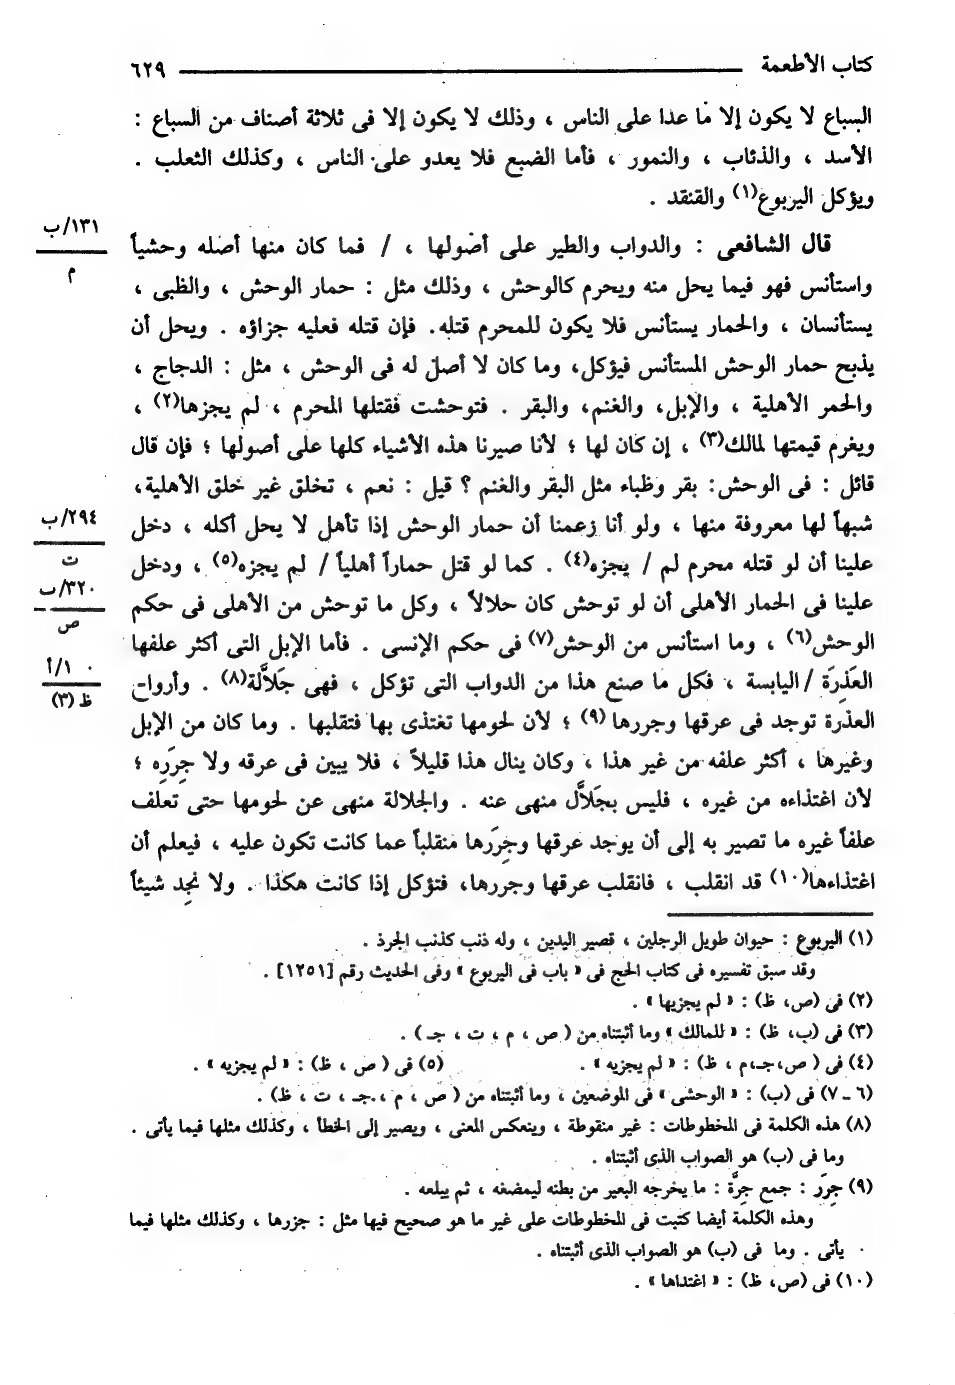 كتاب الأطعمة ٦٢٩
السباع لا يكون إلا ما عدا على الناس ، وذلك لا يكون إلا فى ثلاثة أصناف من السباع :
الأسد ، والذئاب ، والنمور ، فأما الضبع فلا يعدو على الناس ، وكذلك الثعلب .
ويؤكل اليربوع(١) والقنقد .
قال الشافعى : والدواب والطير على أصولها ، / فما كان منها أصله وحشياً
١٣١/ب
م
واستأنس فهو فيما يحل منه ويحرم كالوحش ، وذلك مثل : حمار الوحش ، والظبى ،
يستأنسان ، والحمار يستأنس فلا يكون للمحرم قتله. فإن قتله فعليه جزاؤه . ويحل أن
يذبح حمار الوحش المستأنس فيؤكل، وما كان لا أصل له فى الوحش ، مثل : الدجاج ،
والحمر الأهلية ، والإبل، والغنم، والبقر . فتوحشت فقتلها المحرم ، لم يجزها(٢) ،
ويغرم قيمتها لمالك(٣) ، إن كان لها ؛ لأنا صيرنا هذه الأشياء كلها على أصولها ؛ فإن قال
قائل : فى الوحش: بقر وظباء مثل البقر والغنم ؟ قيل : نعم ، تخلق غير خلق الأهلية،
شبهاً لها معروفة منها ، ولو أنا زعمنا أن حمار الوحش إذا تأهل لا يحل أكله ، دخل
٢٩٤/ب
ت
علينا أن لو قتله محرم لم / يجزه(٤) . كما لو قتل حماراً أهلياً / لم يجزه(٥) ، ودخل
٣٢٠/ب
ص
علينا فى الحمار الأهلى أن لو توحش كان حلالاً ، وكل ما توحش من الأهلى فى حكم
الوحش(٦) ، وما استأنس من الوحش(٧) فى حكم الإنسى . فأما الإبل التى أكثر علفها
١٠/أ
ظ (٣)
العَذِرَة /اليابسة ، فكل ما صنع هذا من الدواب التى تؤكل ، فهى جَلاَّلة(٨) . وأرواح
العذرة توجد فى عرقها وجررها (٩) ؛ لأن لحومها تغتذى بها فتقلبها . وما كان من الإبل
وغيرها ، أكثر علفه من غير هذا ، وكان ينال هذا قليلاً ، فلا يبين فى عرقه ولا جِرَرِه ؛
لأن اغتذاءه من غيره ، فليس بجَلاَّل منهى عنه . والجلالة منهى عن لحومها حتى تعلف
علفاً غيره ما تصير به إلى أن يوجد عرقها وجِرَرها منقلباً عما كانت تكون عليه ، فيعلم أن
اغتذاءها(١٠) قد انقلب ، فانقلب عرقها وجررها، فتؤكل إذا كانت هكذا . ولا نجِد شيئاً
(١) اليربوع : حيوان طويل الرجلين ، قصير اليدين ، وله ذنب كذنب الجرذ .
وقد سبق تفسيره فى كتاب الحج فى « باب فى اليربوع » وفى الحديث رقم [١٢٥١] .
(٢) فى (ص، ظ) : « لم يجزيها » .
(٣) فى (ب، ظ) : « للمالك » وما أثبتناه من ( ص ، م ، ت ، جـ ) .
(٤) فى ( ص،جـ،م ، ظ) : « لم يجزيه » . (٥) فى ( ص ، ظ) : « لم يجزيه » .
(٦ ـ ٧) فى (ب) : « الوحشى » فى الموضعين ، وما أثبتناه من ( ص ، م ، جـ ، ت ، ظ) .
(٨) هذه الكلمة فى المخطوطات : غير منقوطة ، وينعكس المعنى ، ويصير إلى الخطأ ، وكذلك مثلها فيما يأتى .
وما فى (ب) هو الصواب الذى أثبتناه .
(٩) جِرَر : جمع جِرَّة : ما يخرجه البعير من بطنه ليمضغه ، ثم يبلعه .
وهذه الكلمة أيضا كتبت فى المخطوطات على غير ما هو صحيح فيها مثل : جزرها ، وكذلك مثلها فيما
يأتى . وما فى (ب) هو الصواب الذى أثبتناه .
(١٠) فى (ص، ظ) : « اغتداها » .